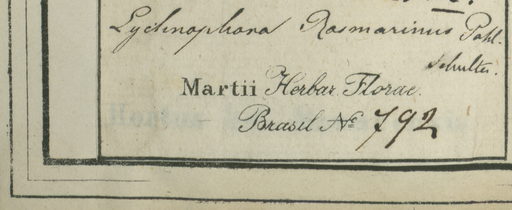 Lychnophora Rosmarinus Pohl.
Schultes.
Martii Herbar. Florae
Brasil No 792